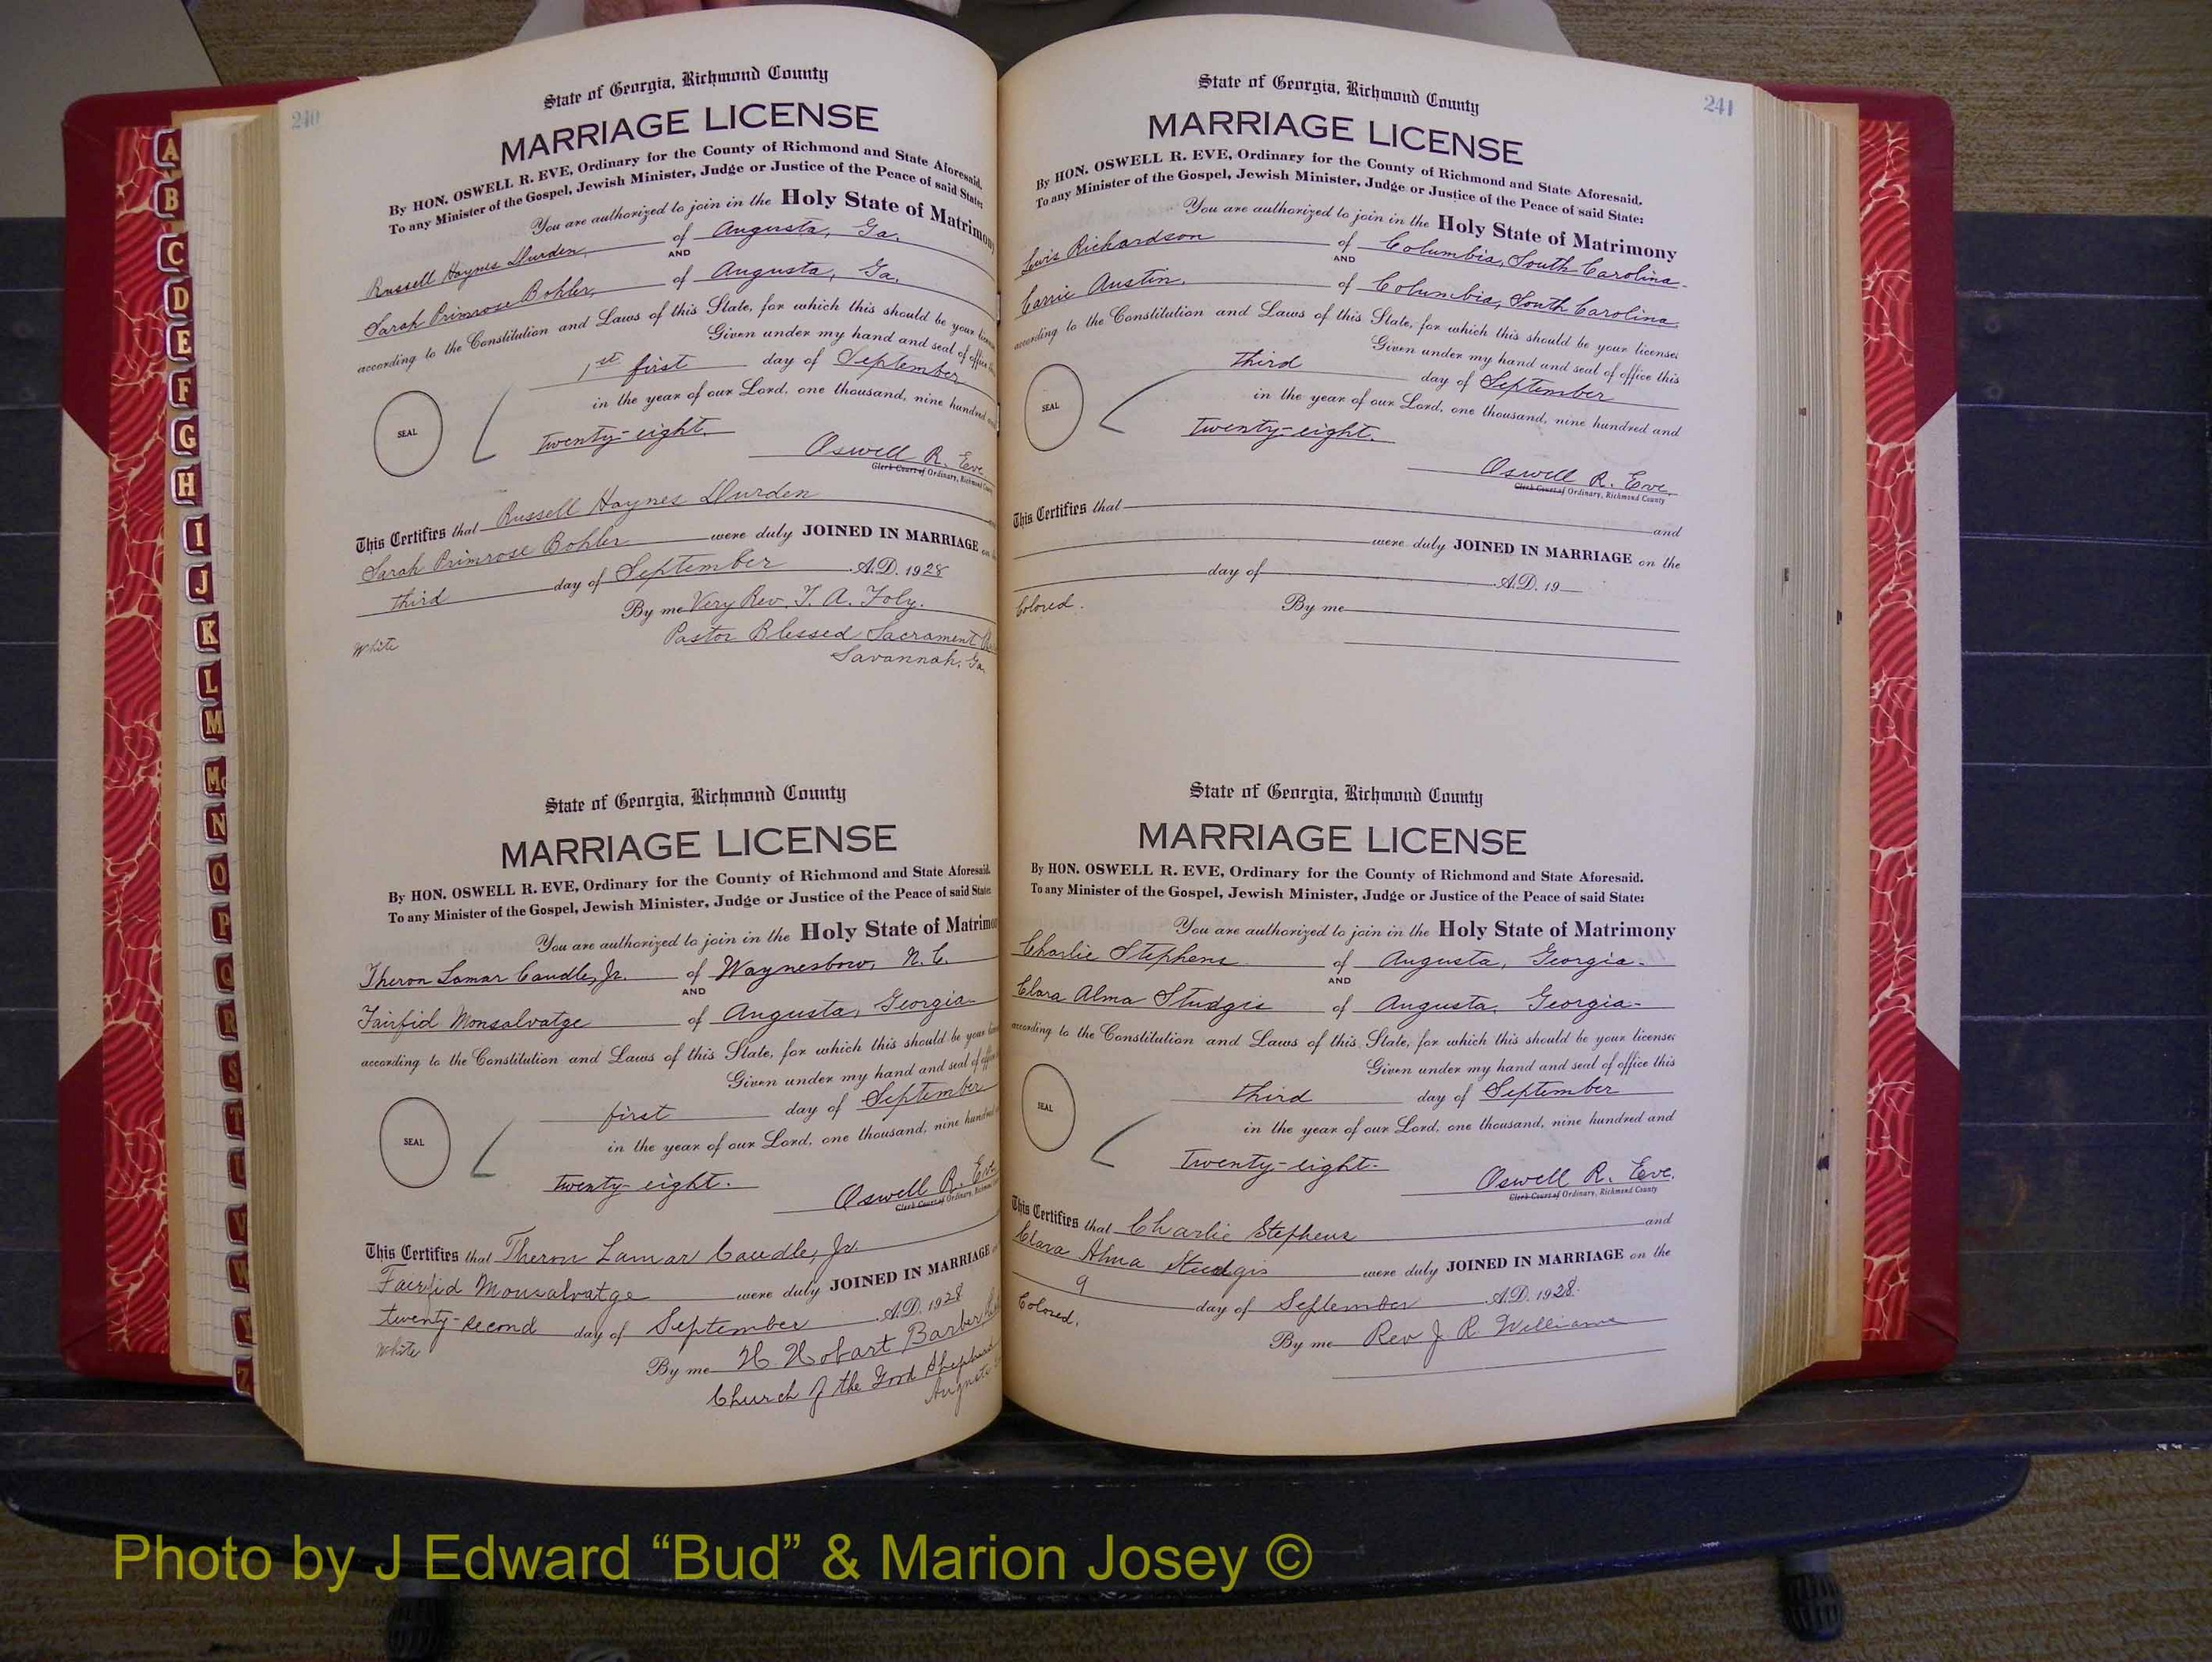 A
B
C
D
E
F
G
H
I
J
K
L
M
Mc
N
O
P
Q
R
S
T
U
V
W
Y
Z
240
State of Georgia, Richmond County
MARRIAGE LICENSE
By HON. OSWELL R. EVE, Ordinary for the County of Richmond and State Aforesaid.
To any Minister of the Gospel, Jewish Minister, Judge or Justice of the Peace of said State:
You are authorized to join in the Holy State of Matrimony
Russell Haynes Durden, of Augusta, Ga.
AND
Sarah Primrose Bohler, of Augusta, Ga.
according to the Constitution and Laws of this State, for which this should be your
Given under my hand and seal of office
1st first day of September
in the year of our Lord, one thousand, nine hundred
SEAL
twenty-eight.
Oswell R. Eve
Clerk Court of Ordinary, Richmond County
This Certifies that Russell Haynes Durden
Sarah Primrose Bohler were duly JOINED IN MARRIAGE on
third day of September A.D. 1928
By me Very Rev. T. A. Foly.
Pastor Blessed Sacrament
Savannah, Ga.
White
State of Georgia, Richmond County
MARRIAGE LICENSE
By HON. OSWELL R. EVE, Ordinary for the County of Richmond and State Aforesaid.
To any Minister of the Gospel, Jewish Minister, Judge or Justice of the Peace of said State:
You are authorized to join in the Holy State of Matrimo
Theron Lamar Caudle, Jr. of Waynesboro, N. C.
AND
Fairfid Monsalvatge of Augusta, Georgia
according to the Constitution and Laws of this State, for which this should be your
Given under my hand and seal of
first day of September
in the year of our Lord, one thousand, nine hundred
SEAL
twenty-eight.
Oswell R. Eve
Clerk Court of Ordinary, Richmond
This Certifies that Theron Lamar Caudle, Jr.
Fairfid Monsalvatge were duly JOINED IN MARRIAGE
twenty-second day of September A.D. 1928
White
By me H. Hobart Barber
Church of the Good Shepherd
Augusta
241
State of Georgia, Richmond County
MARRIAGE LICENSE
By HON. OSWELL R. EVE, Ordinary for the County of Richmond and State Aforesaid.
To any Minister of the Gospel, Jewish Minister, Judge or Justice of the Peace of said State:
You are authorized to join in the Holy State of Matrimony
Lewis Richardson of Columbia, South Carolina.
AND
Carrie Austin. of Columbia, South Carolina
according to the Constitution and Laws of this State, for which this should be your license:
Given under my hand and seal of office this
third day of September
in the year of our Lord, one thousand, nine hundred and
SEAL
twenty-eight.
Oswell R. Eve.
Clerk Court of Ordinary, Richmond County
This Certifies that and
were duly JOINED IN MARRIAGE on the
day of A.D. 19
Colored.
By me
State of Georgia, Richmond County
MARRIAGE LICENSE
By HON. OSWELL R. EVE, Ordinary for the County of Richmond and State Aforesaid.
To any Minister of the Gospel, Jewish Minister, Judge or Justice of the Peace of said State:
You are authorized to join in the Holy State of Matrimony
Charlie Stephens of Augusta, Georgia.
AND
Clara Alma Studgis of Augusta, Georgia-
according to the Constitution and Laws of this State, for which this should be your license:
Given under my hand and seal of office this
third day of September
in the year of our Lord, one thousand, nine hundred and
SEAL
Twenty-eight-
Oswell R. Eve.
Clerk Court of Ordinary, Richmond County
This Certifies that Charlie Stephens and
Clara Alma Studgis were duly JOINED IN MARRIAGE on the
9 day of September A.D. 1928.
Colored.
By me Rev J. R. Williams
Photo by J Edward “Bud” & Marion Josey ©